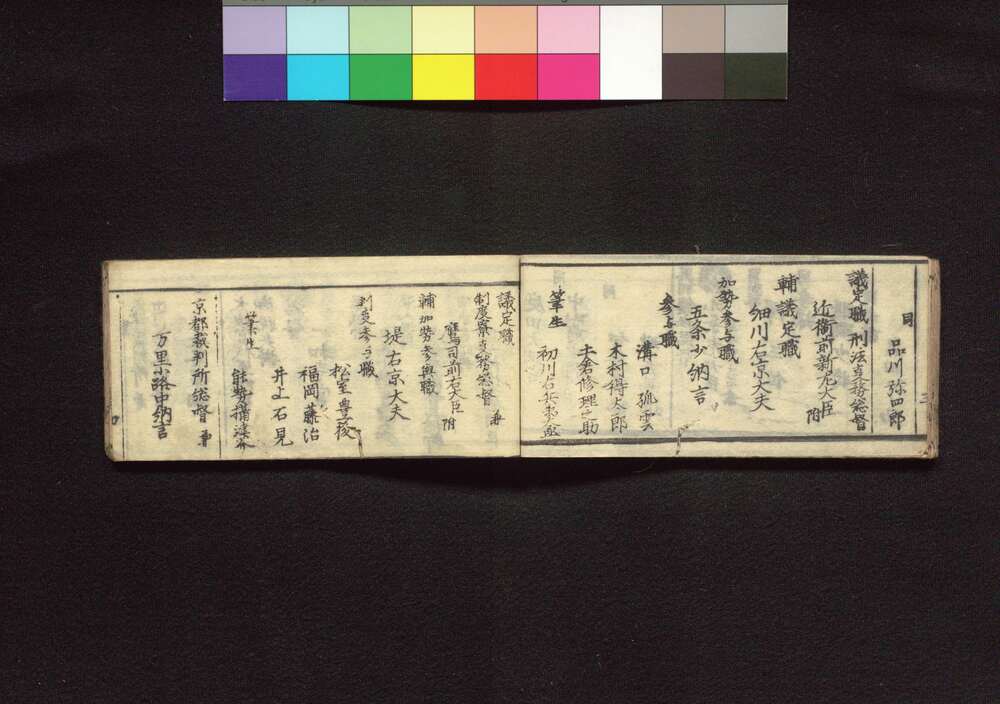 同
品川弥四郎
議定職 刑法事務総督
近衞前新左大臣
附
輔議定職
細川右京大夫
加勢参与職
五条少納言
参与職
溝口孤雲
木村得太郎
土倉修理之助
筆生
議定職
制度寮事務総督
鷹司前右大臣
附
輔加勢参與職
堤右京大夫
参与職
松室豊後
福岡藤治
井上石見
筆生
京都裁判所総督
万里小路中納言